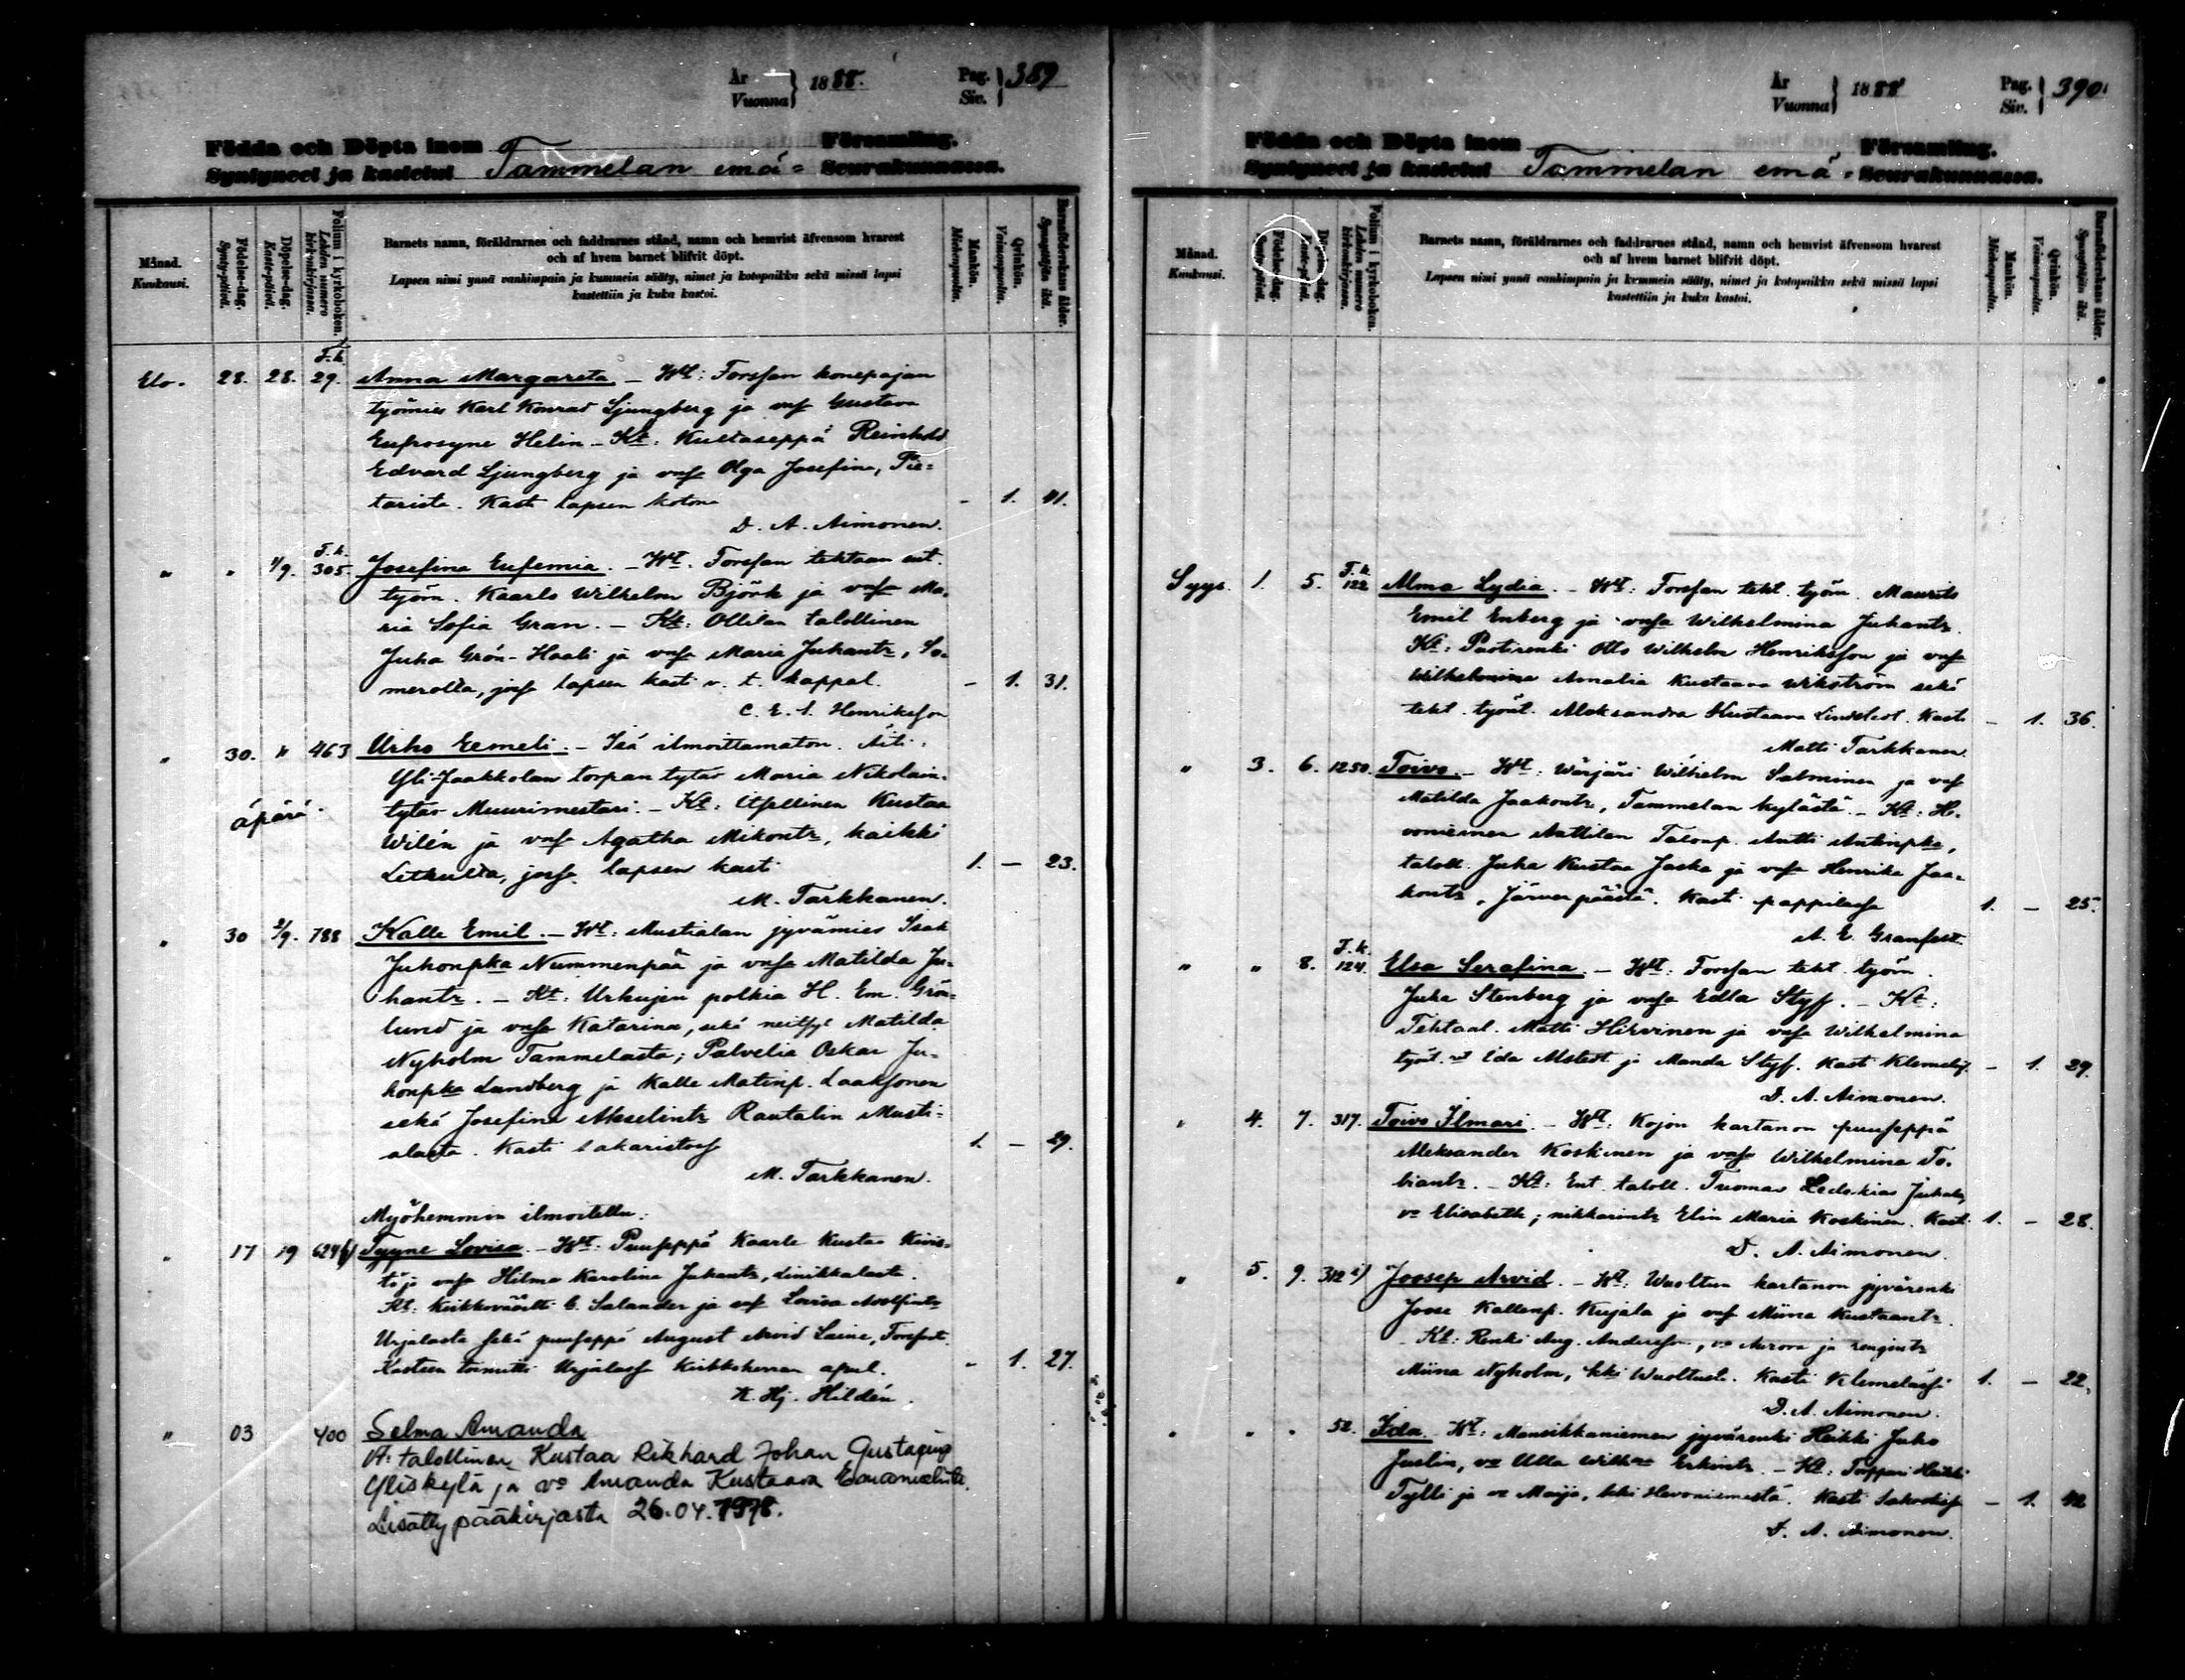 År
Vuonna } 1888.
Pag.
Siv. } 389
Födda och Döpta inom Församling.
Syntyneet ja kastetut Tammelan emä= Seurakunnassa.
Månad.
Kuukausi.
Födelse-dag.
Synty-päivä.
Döpelse-dag.
Kaste-päivä.
Folium i kyrkoboken.
Lehden numero kirkonkirjassa.
Barnets namn, föräldrarnes och faddrarnes stånd, namn och hemvist äfvensom hvarest
och af hvem barnet blifvit döpt.
Lapsen nimi ynnä vanhimpain ja kummein sääty, nimet ja kotopaikka sekä missä lapsi
kastettiin ja kuka kastoi.
Mankön.
Miehenpuolta.
Qvinkön.
Vaimonpuolta.
Barnaföderskans ålder.
Synnyttäjän ikä.
F.k.
Elo. 28. 28. 29. Anna Margareta. – Wt: Forssan konepajan
työmies Karl Konrad Ljungberg ja vmsa Gustava
Eufrosyne Helin – Kt: Kultaseppä Reinhold
Edvard Ljungberg ja vmsa Olga Josefina, Pie=
tarista. Kasti lapsen kotona – 1. 41.
D. A. Aimonen.
F.k.
" " 1/9. 305. Josefina Eufemia. – Wt. Forssan tehtaan
työm. Kaarlo Wilhelm Björk ja vmsa Ma=
ria Sofia Gran. – Kt: Ollilan talollinen
Juha Grön-Haali ja vmsa Maria Juhantr, So=
merolla, jossa lapsen kasti v. t. kappal. – 1. 31.
C. E. A. Henriksson
" 30. " 463 Urho Eemeli. – Isä ilmoittamaton. Äiti:
Yli-Jaakkolan torpan tytär Maria Nikolain=
tytär Muurimestari. – Kt: Itsellinen Kustaa
äpärä.
Wilén ja vmsa Agatha Mikontr, kaikki
Letkulla, jossa lapsen kasti 1. – 23.
M. Tarkkanen.
" 30 2/9. 788 Kalle Emil. – Wt: Mustialan jyvämies Isak
Juhonpka Nummenpää ja vmsa Matilda Ju=
hantr. – Kt: Urkujen polkia H. Em. Grön=
lund ja vmsa Katarina, sekä neitsyt Matilda
Nyholm Tammelasta; Palvelia Oskar Ju=
honpka Lundberg ja Kalle Matinp. Laaksonen
sekä Josefina Akselintr Rautalin Musti=
alasta. Kasti sakaristossa 1. – 29.
M. Tarkkanen.
Myöhemmin ilmoitettu:
" 17 19 624 Tyyne Lovisa. – Wt: Puuseppä Kaarle Kustaa Kivis=
tö ja vmsa Hilma Karolina Juhantr, Linikkalasta.
Kt: C. Salander ja vmsa Lovisa Adolfintr
Urjalasta sekä puuseppä August Arvid Laine, Forssast.
Kasteen toimitti Urjalassa Kirkkoherran apul. – 1. 27.
K. Hj. Hildén.
" 03 400 Selma Amanda
Vt: talollinen Kustaa Rikhard Johan Gustafinp
Yliskylä ja vo Amanda Kustaava Emanuelintr.
Lisätty pääkirjasta 26.04.1978.
År
Vuonna } 1888
Pag.
Siv. } 390.
Födda och Döpta inom Församling.
Syntyneet ja kastetut Tammelan emä= Seurakunnassa.
Månad.
Kuukausi.
Födelse-dag.
Synty-päivä.
Döpelse-dag.
Kaste-päivä.
Folium i kyrkoboken.
Lehden numero kirkonkirjassa.
Barnets namn, föräldrarnes och faddrarnes stånd, namn och hemvist äfvensom hvarest
och af hvem barnet blifvit döpt.
Lapsen nimi ynnä vanhimpain ja kummein sääty, nimet ja kotopaikka sekä missä lapsi
kastettiin ja kuka kastoi.
Mankön.
Miehenpuolta.
Qvinkön.
Vaimonpuolta.
Barnaföderskans ålder.
Synnyttäjän ikä.
F.k.
Syys. 1. 5. 122 Alma Lydia. – Wt: Forssan teht. työm. Maurits
Emil Enberg ja vmsa Wilhelmina Juhantr.
Kt: Puotirenki Otto Wilhelm Henriksson ja vmsa
Wilhelmina Amalia Kustaava Wikström sekä
teht. työnt. Aleksandra Kustaava Lindstedt. Kasti – 1. 36.
Matti Tarkkanen.
" 3. 6. 1250. Toivo. – Wt: Wärjäri Wilhelm Salminen ja vmsa
Matilda Jaakontr, Tammelan kylästä. – Kt: He=
voniemen Anttilan Talonp. Antti Antinpka,
taloll. Juha Kustaa Jaska ja vmsa Henrika Jaa=
kontr, Järvenpäästä. Kasti pappilassa 1. – 25.
A. E. Granfelt.
F.k.
" " 8. 124. Elsa Serafina. – Wt: Forssan teht. työm.
Juha Stenberg ja vmsa Edla Styff. – Kt:
Tehtaal. Matti Hirvinen ja vmsa Wilhelmina
työnt. Ida Alstedt ja Manda Styff. Kasti Klemelässä – 1. 29.
D. A. Aimonen.
" 4. 7. 317. Toivo Ilmari. – Wt: Kojon kartanon puuseppä
Aleksander Koskinen ja vmsa Wilhelmina To=
biantr. – Kt: Ent. taloll. Tuomas
vo Elisabeth; nikkarintr Elin Maria Koskinen. Kasti 1. – 28.
D. A. Aimonen.
" 5. 9. 312 Joosep Arvid. – Wt: Wuoltun kartanon jyvärenki
Joose Kallenp. Kujala ja vmsa Miina Kustaantr.
Kt: Renki Aug. Andersson, vo Aurora ja rengintr
Miina Nyholm, kki Wuoltust. Kasti Klemelässä 1. – 22.
D. A. Aimonen.
" " " 52. Ida. Wt: Mansikkaniemen jyvärenki Heikki Juho
Juslin, vo Ulla Wilh:a Erkintr. – Kt: Torppari Heikki
Tylli ja vo Maija, kki Hevoniemestä. Kasti – 1. 42
D. A. Aimonen.